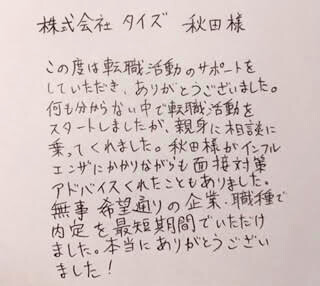 株式会社 タイズ 秋田様
この度は転職活動のサポートを
していただき、ありがとうございました。
何も分からない中で転職活動を
スタートしましたが、親身に相談に
乗ってくれました。秋田様がインフル
エンザにかかりながらも面接対策
アドバイスくれたこともありました。
無事 希望通りの企業・職種で
内定を最短期間でいただけ
ました。本当にありがとうござい
ました!